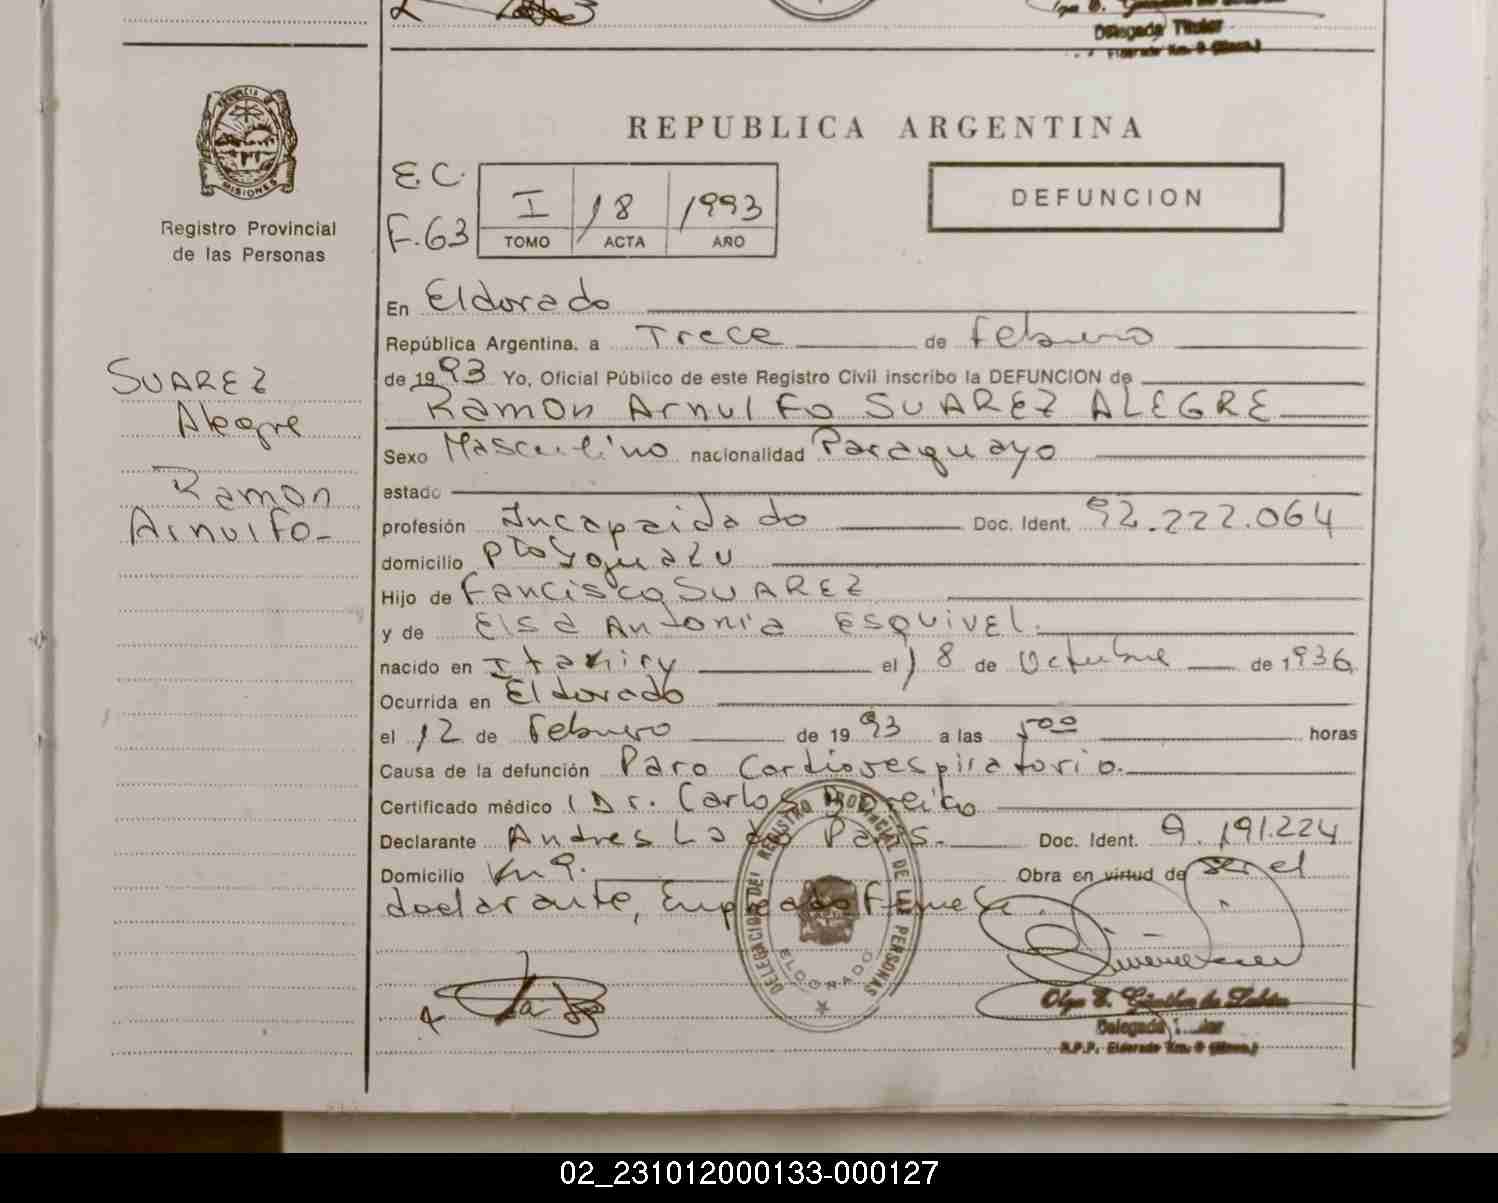 Delegada Titular
Eldorado Km. 9 (Mnes.)
PROVINCIA DE
MISIONES
Registro Provincial
de las Personas
SUAREZ
Alegre
Ramon
Arnulfo-
REPUBLICA ARGENTINA
E.C.
F.63
I 18 1993
TOMO ACTA AÑO
DEFUNCION
En Eldorado
República Argentina, a Trece de Febrero
de 1993 Yo, Oficial Público de este Registro Civil inscribo la DEFUNCION de
Ramon Arnulfo SUAREZ ALEGRE
Sexo Masculino nacionalidad Paraguayo
estado
profesión Incapaidado Doc. Ident. 92.222.064
domicilio Pto Yguazu
Hijo de Fancisco SUAREZ
y de Elsa Antonia ESQUIVEL.
nacido en Itakiry el 18 de Octubre de 1936
Ocurrida en Eldorado
el 12 de Febrero de 1993 a las 5ºº horas
Causa de la defunción Paro Cardiorespiratorio.
Certificado médico Dr. Carlos
Declarante Andres Doc. Ident. 9.191.224
Domicilio Km 9. Obra en virtud de ser el
declarante, Empleado
DELEGACION DEL REGISTRO PROVINCIAL DE LAS PERSONAS
ELDORADO
Olga E. Günther de
Delegada Titular
R.P.P. Eldorado Km. 9 (Mnes.)
02_231012000133-000127